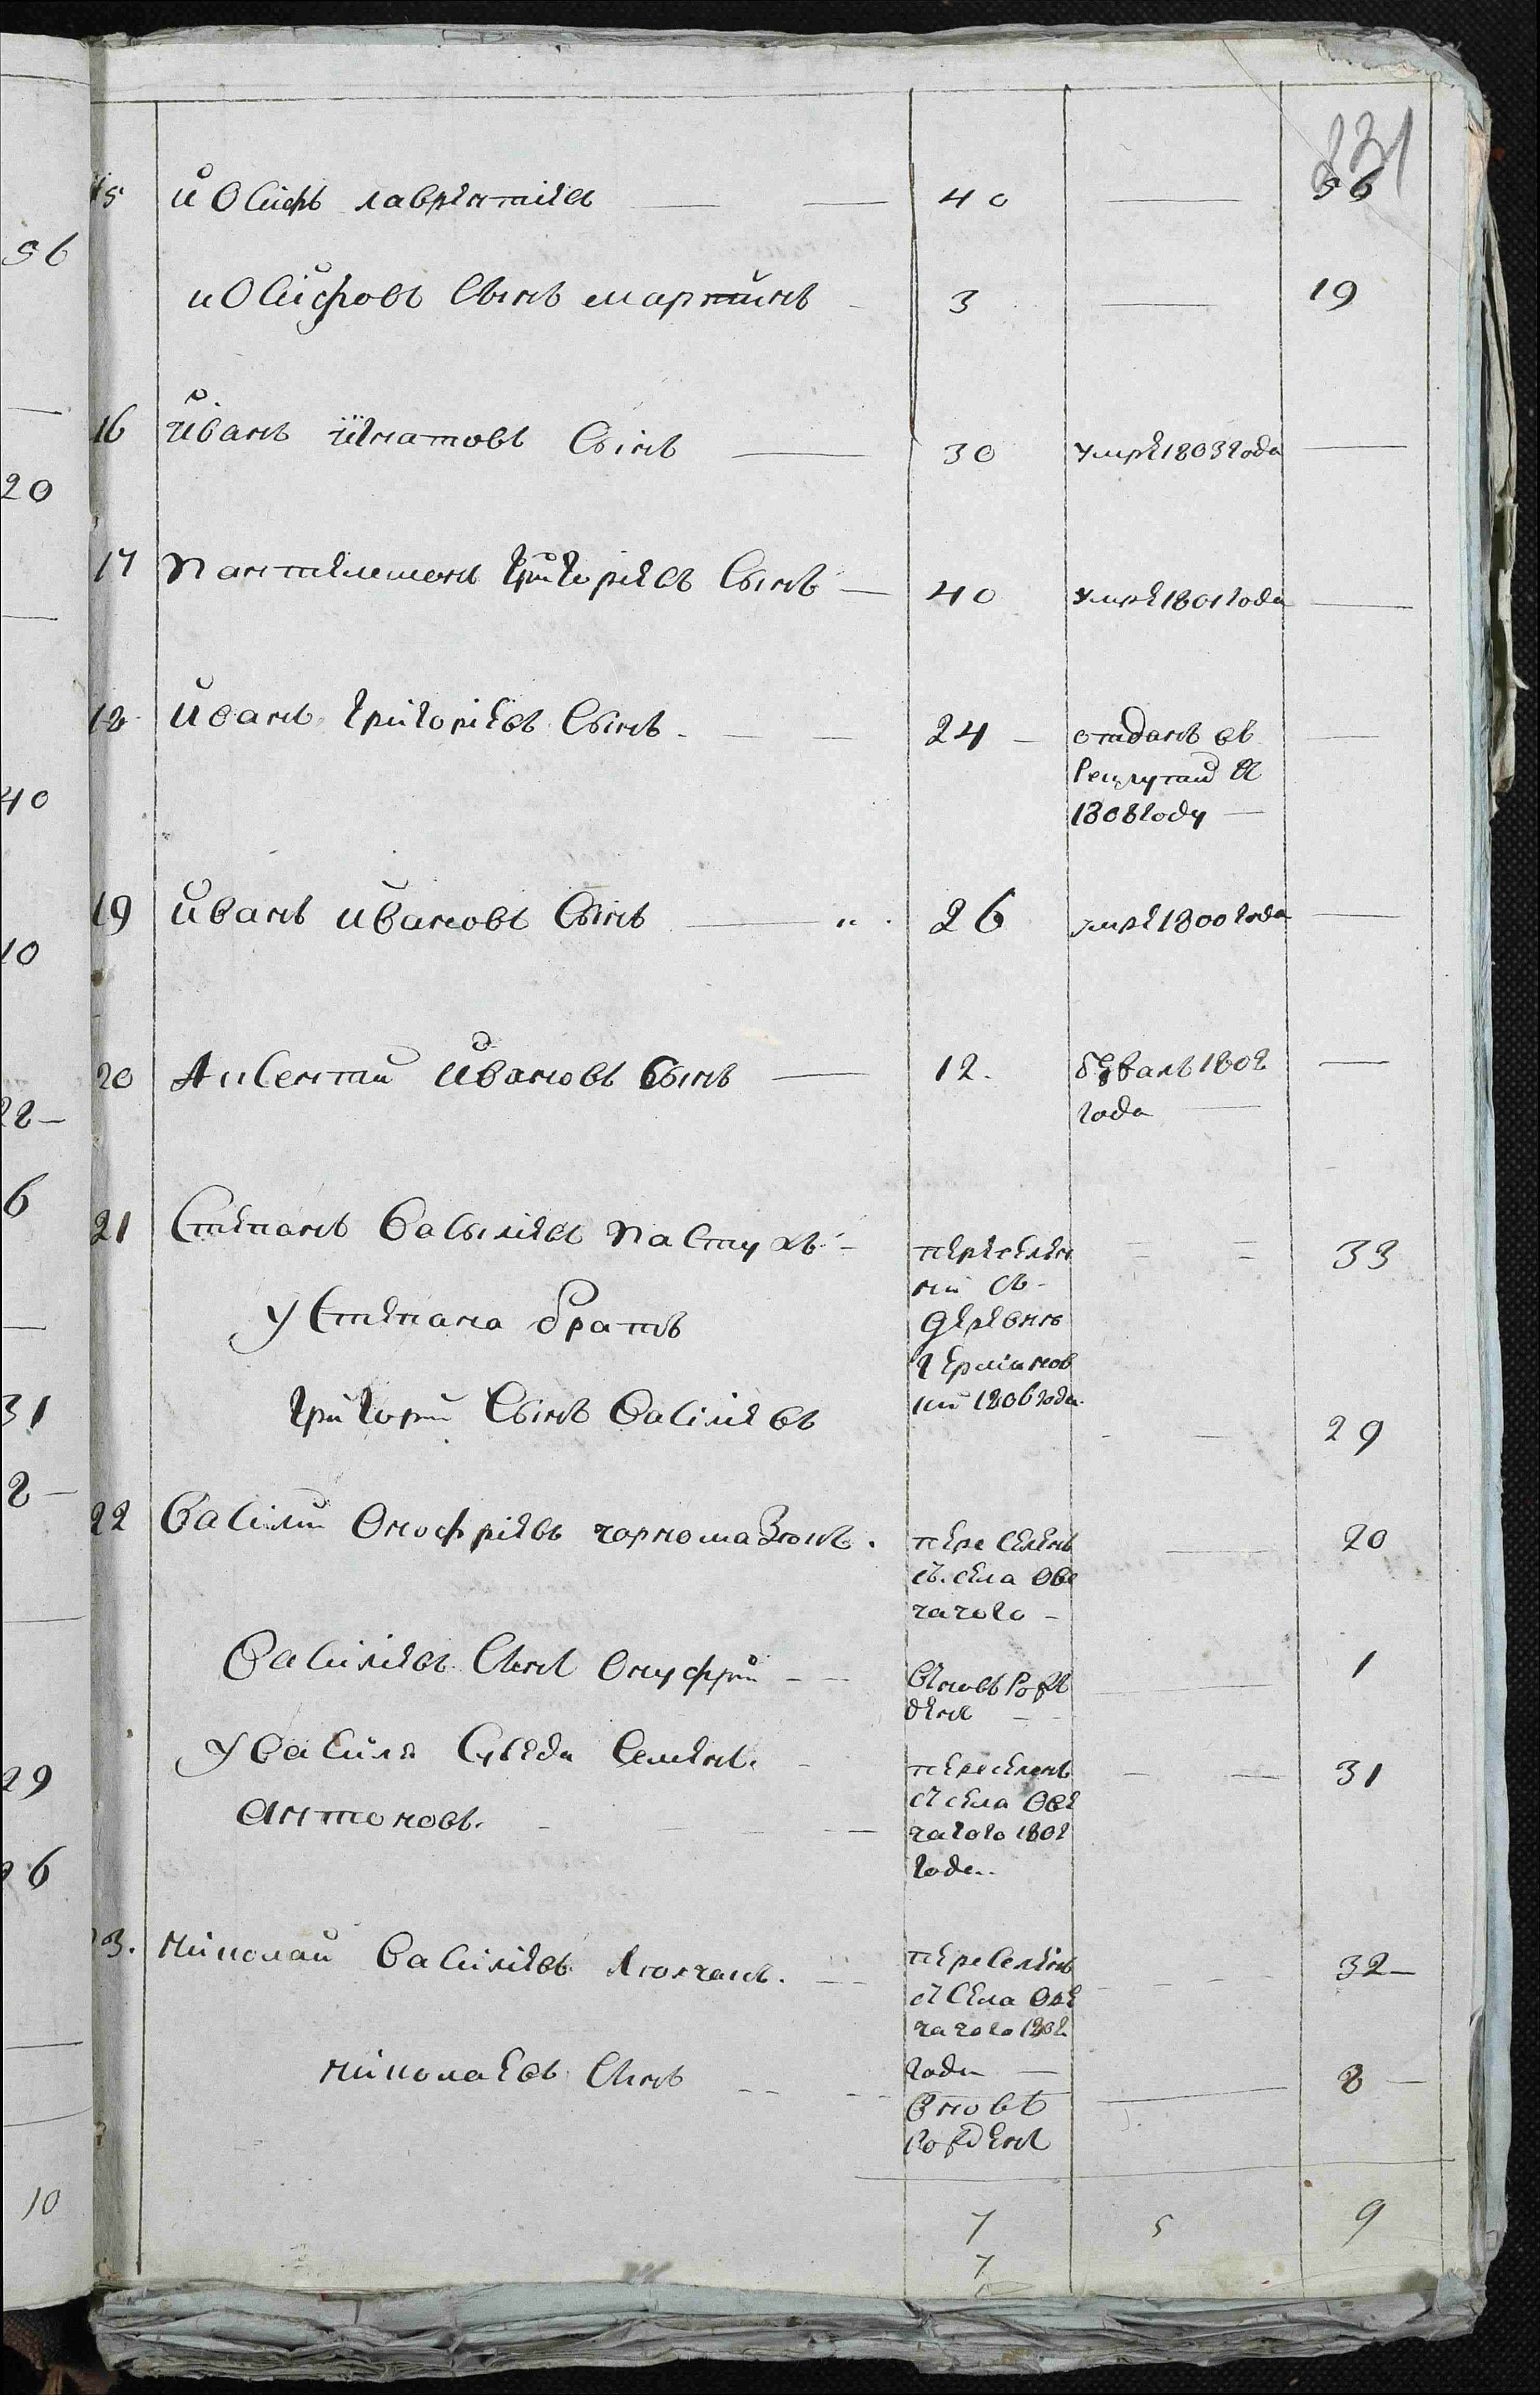 331
15 иОсифъ лаврентиевъ 40 56
иОсифовъ Сынъ мартинъ 3 19
16 иванъ игнатовъ Сынъ 30 умре 1803 года
17 Пантелемонъ Григориевъ Сынъ 40 умре 1801 года
18 иванъ Григориевъ Сынъ 24 отданъ въ
Рецрути въ
1808 году
19 иванъ ивановъ Сынъ 26 умре 1800 года
20 Авсентий ивановъ Сынъ 12 бежалъ 1802
года
21 Степанъ Васылиевъ Пастухъ переселен 33
ни съ
у Степана братъ деревни
Германов
Григорий Сынъ Василиевъ ки 1806 года 29
22 Василий Онофриевъ чорномазюкъ переселенъ 20
съ села Ове
чачого
Василиевъ Сынъ Онуфрий вновъ Рож 1
денъ
у Василя Суседа Семенъ переселенъ 31
Антоновъ съ села Ове
чачого 1802
года
23 николай Василиевъ переселенъ 32
съ Села Ове
чачого 1802
года
николаевъ Сынъ вновъ 8
Рожденъ
7 5 9
7
56
20
40
10
22
6
31
2
29
26
10